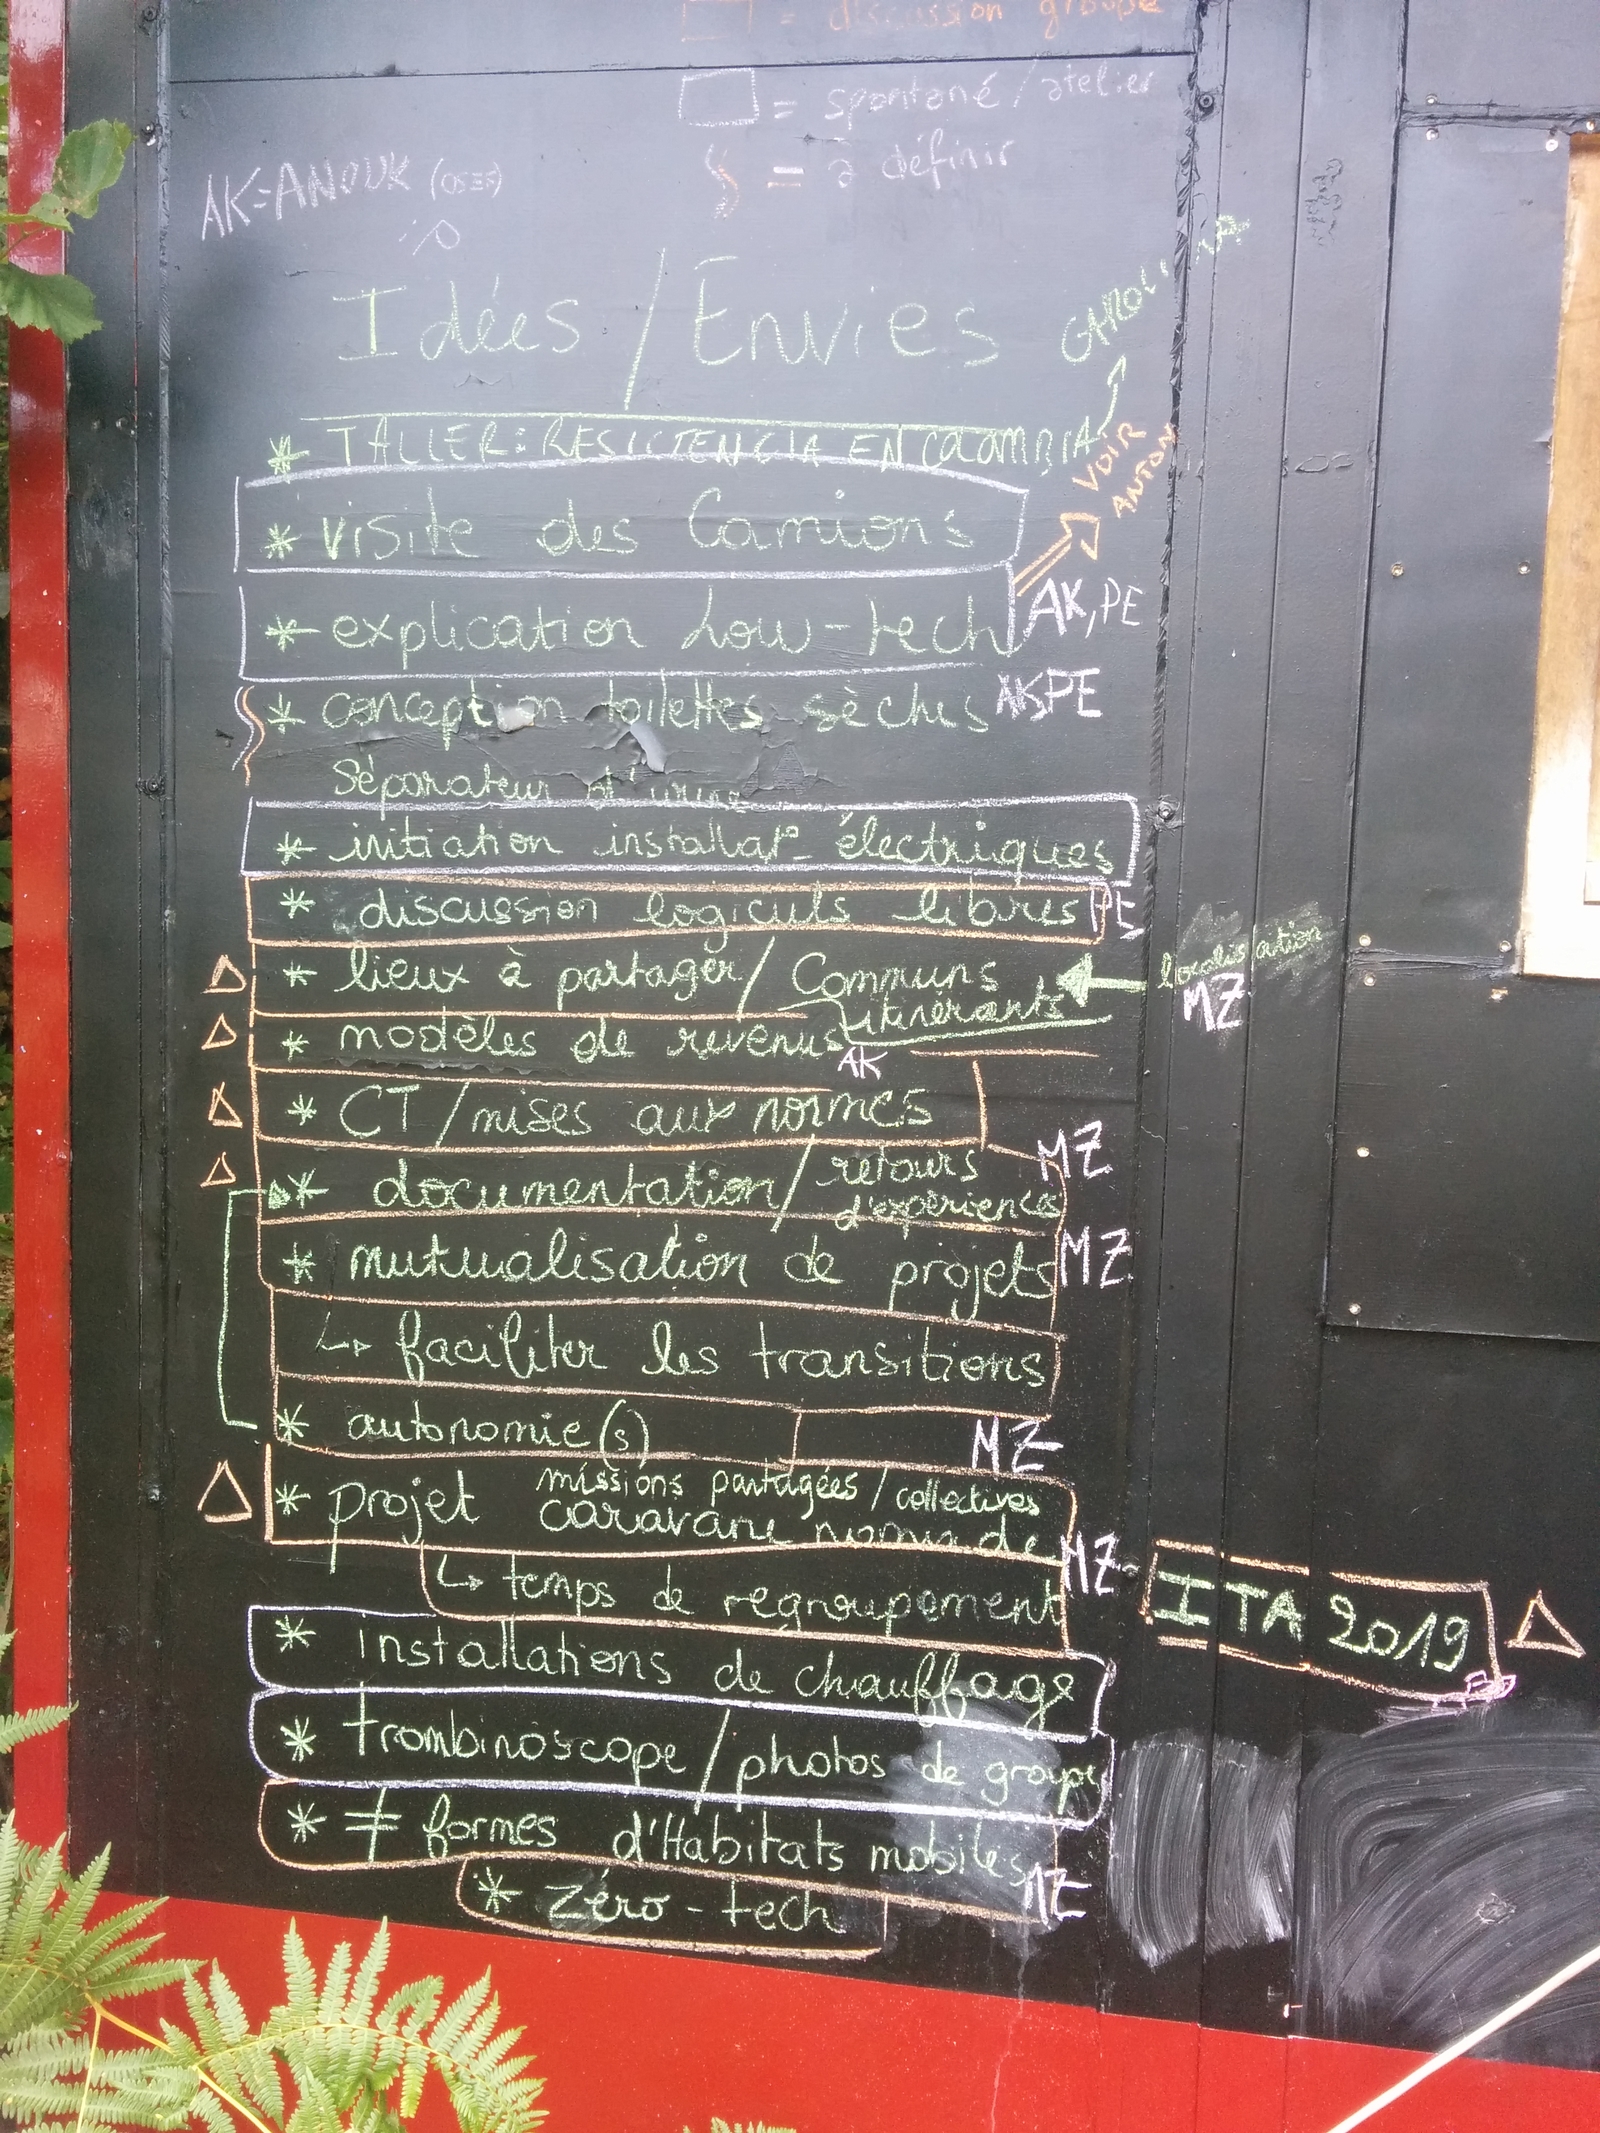 = discussion groupe
= spontané / atelier
= à définir
AK=ANOUK
Idées / Envies
* TALLER: RESISTENCIA EN COLOMBIA
VOIR
ANTON
* visite des Camions
* explication Low-tech AK, PE
* conception toilettes sèches AK, PE
séparateur d'urine
* initiation installat° électriques
* discussion logiciels libres PE
* lieux à partager / Communs
itinérants
localisation
MZ
* modèles de revenus
AK
* CT / mises aux normes
MZ
* documentation / retours
d'expériences
* mutualisation de projets MZ
↳ faciliter les transitions
* autonomie(s) MZ
* projet missions partagées / collectives
caravane nomade
MZ
↳ temps de regroupement
ITA 2019
* installations de chauffage
* trombinoscope / photos de groupe
* ≠ formes d'Habitats mobiles
MZ
* zéro-tech